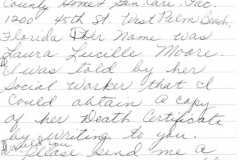 County Home & San. Care. Fac
1200 45th St. West Palm Beach,
Florida Her Name was
Laura Lucille Moore.
I was told by her
Social Worker that I
Could obtain A copy
of her Death Certificate
by writing to you.
Please send me a